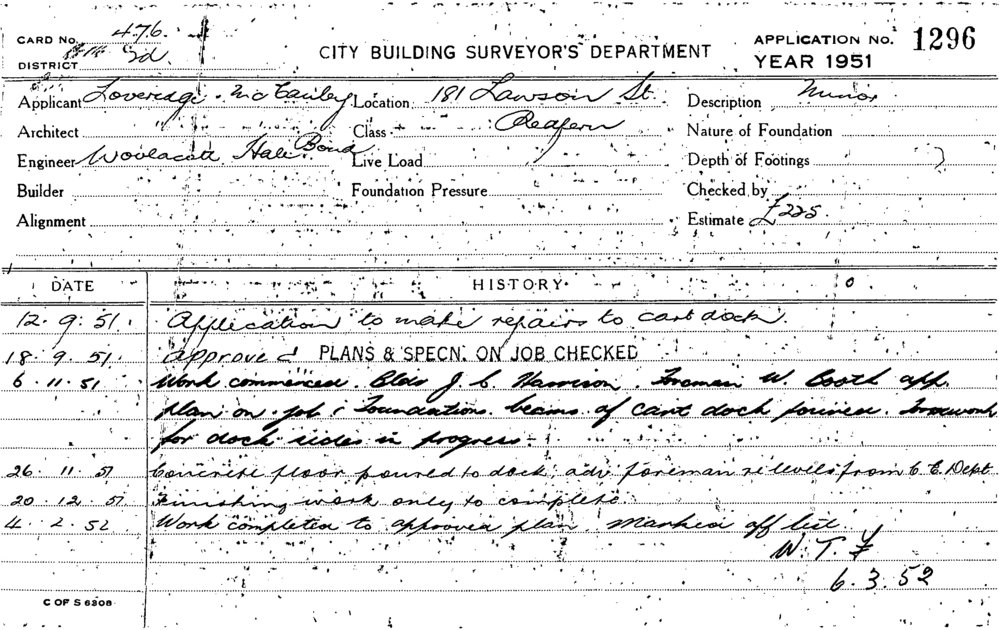 CARD NO. 476.
CITY BUILDING SURVEYOR'S DEPARTMENT
APPLICATION NO. 1296
DISTRICT 2d.
YEAR 1951
Applicant Loveridge McCauley Location 181 Lawson St. Description Minor
Architect Class Redfern Nature of Foundation
Engineer Woolacott Hale Bond Live Load Depth of Footings
Builder Foundation Pressure Checked by
Alignment Estimate £225.
DATE HISTORY
12. 9. 51. Application to make repairs to cart dock.
18. 9. 51. Approved PLANS & SPECN. ON JOB CHECKED
6. 11. 51 Work commenced. Bldr J. C. Harrison. Foreman W. Booth app.
plan on job. Foundations. beams of cart dock poured. Formwork
for dock sides in progress
26. 11. 51 Concrete floor poured to dock. adv foreman re levels from C. E. Dept
20. 12. 51 Finishing work only to complete.
4. 2. 52 Work completed to approved plan. Marked off list.
W. T. F
6. 3. 52
C OF S 6308